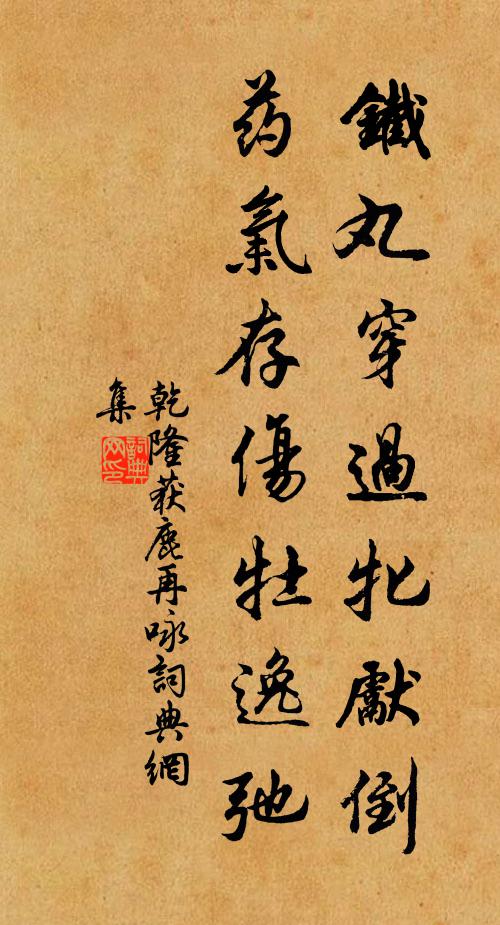 鐵丸穿過牝獻倒
药氣存傷牡逸弛
乾隆获鹿再咏詞典網
集
詞典
网印